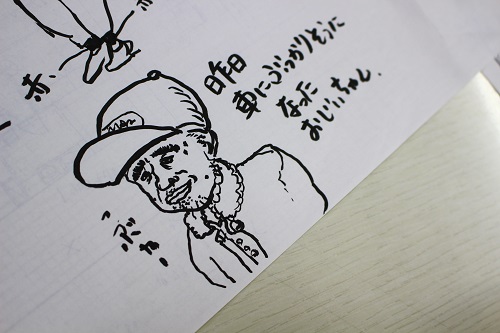 赤
昨日
車にぶつかりそうに
なった
おじいちゃん。